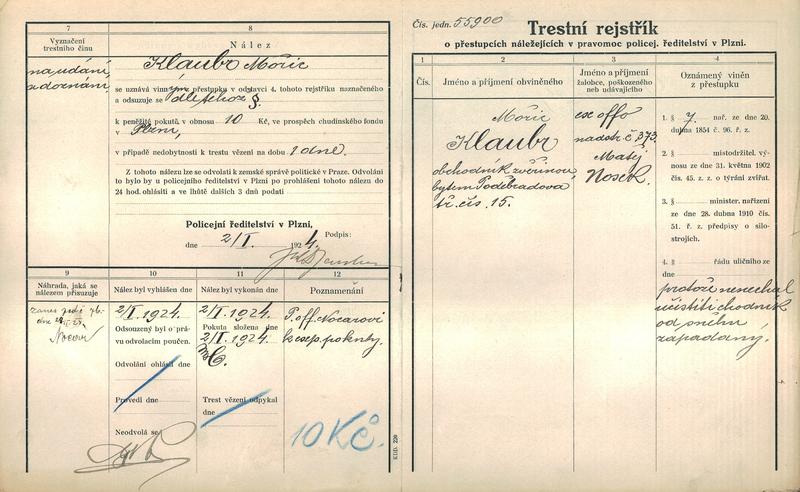 7
Vyznačení
trestního činu
na udání,
a doznání.
8
Nález
Klaubr Mořic
se uznává vinným přestupku v odstavci 4. tohoto rejstříku naznačeného
a odsuzuje se dle téhož §.
k peněžité pokutě, v obnosu 10 Kč, ve prospěch chudinského fondu
v Plzni,
v případě nedobytnosti k trestu vězení na dobu 1 dne.
Z tohoto nálezu lze se odvolati k zemské správě politické v Praze. Odvolání
to bylo by u policejního ředitelství v Plzni po prohlášení tohoto nálezu do
24 hod. ohlásiti a ve lhůtě dalších 3 dnů podati
Policejní ředitelství v Plzni,
dne 2/I. 1924. Podpis:
9
Náhrada, jaká se
nálezem přisuzuje
10
Nález byl vyhlášen dne
2/I. 1924.
Odsouzený byl o prá-
vu odvolacím poučen.
Odvolání ohlásil dne
Provedl dne
Neodvolá se
11
Nález byl vykonán dne
2/I. 1924.
Pokuta složena dne
2/I. 1924.
Trest vězení odpykal
dne
12
Poznamenání
P. off. Nocarovi
k insp. pokuty.
10 Kč.
KUD. 220
Čís. jedn. 55900
Trestní rejstřík
o přestupcích náležejících v pravomoc policej. ředitelství v Plzni.
1
Čís.
2
Jméno a příjmení obviněného
Mořic
Klaubr
obchodník zvěřinou,
bytem Poděbradova
tř. čís. 15.
3
Jméno a příjmení
žalobce, poškozeného
neb udávajícího
ex offo
nadstr. č. 373.
Matěj
Nosek.
4
Oznámený vinén
z přestupku
1. § 7. nař. ze dne 20.
dubna 1854 č. 96. ř. z.
2. § místodržitel. vý-
nosu ze dne 31. května 1902
čís. 45. z. z. o týrání zvířat.
3. § minister. nařízení
ze dne 28. dubna 1910 čís.
81. ř. z. předpisy o silo-
strojích.
4. § řádu uličního ze
dne
protože nenechal
učistiti chodník
od sněhu
zapadaný.